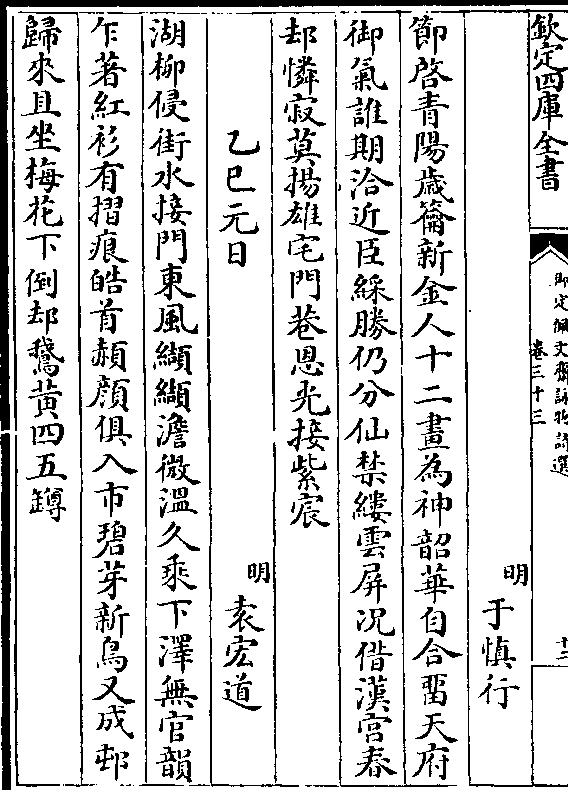 欽定四庫全書
御定佩文齋詠物詩選
卷三十三
十二
明于慎行
節啓青陽歳籥新金人十二畫為神韶華自合畱天府
御氣誰期洽近臣綵勝仍分仙禁縷雲屏况借漢宫春
却憐寂莫揚雄宅門巷恩光接紫宸
乙巳元日
明袁宏道
湖柳侵街水接門東風纈纈澹微溫久乘下澤無官韻
乍著紅衫有摺痕皓首頳顔俱入市碧芽新鳥又成邨
歸來且坐梅花下倒却鵞黄四五罇